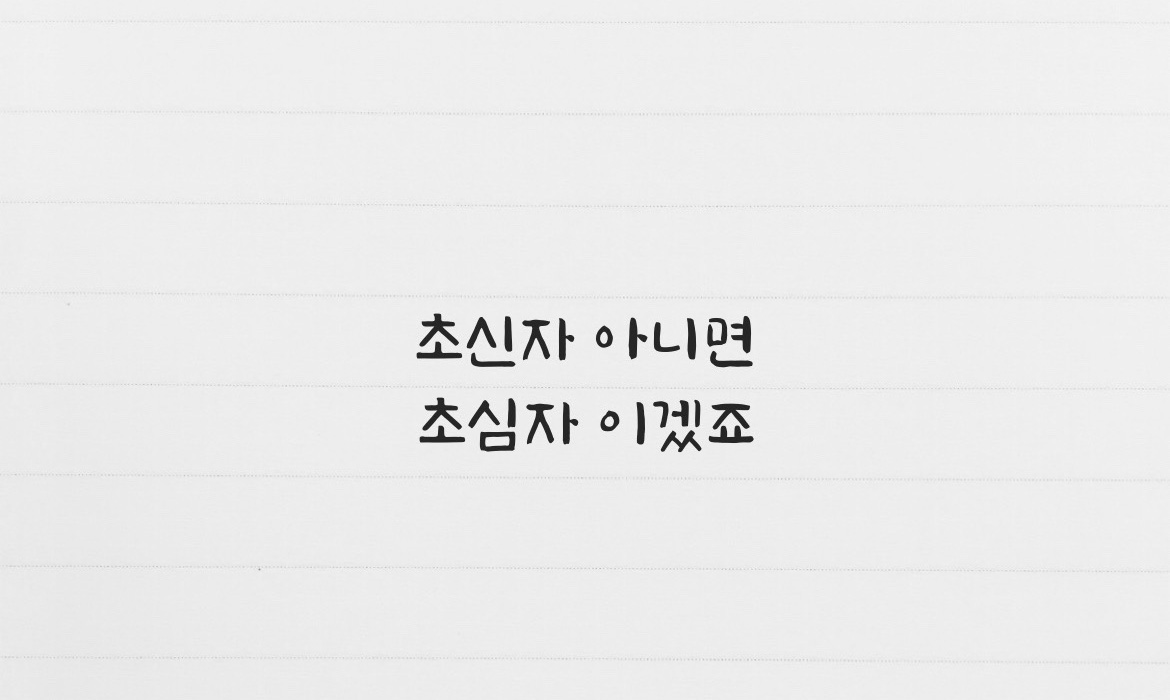 초신자 아니면
초심자 이겠죠